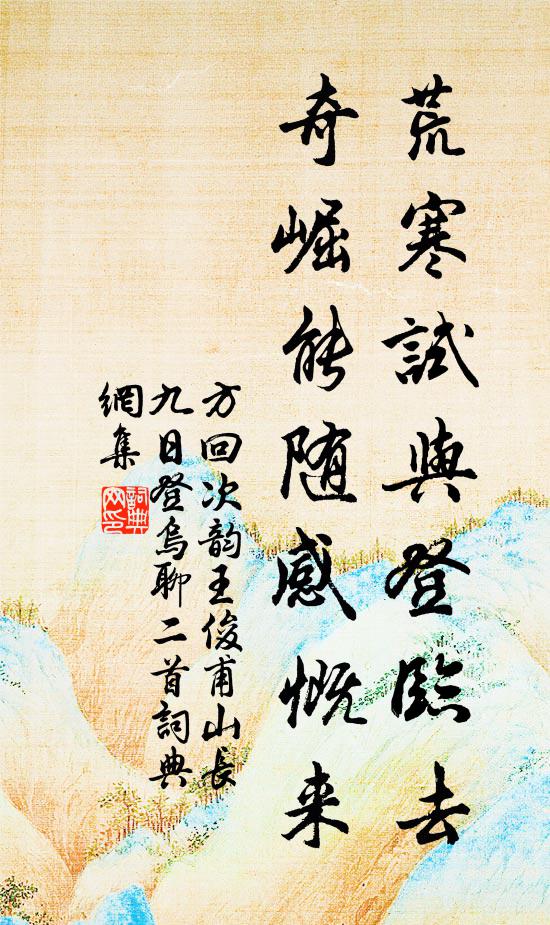 荒寒試與登臨去
奇崛能随感慨来
方回次韵王俊甫山長
九日登烏聊二首詞典
網集
詞典
网印